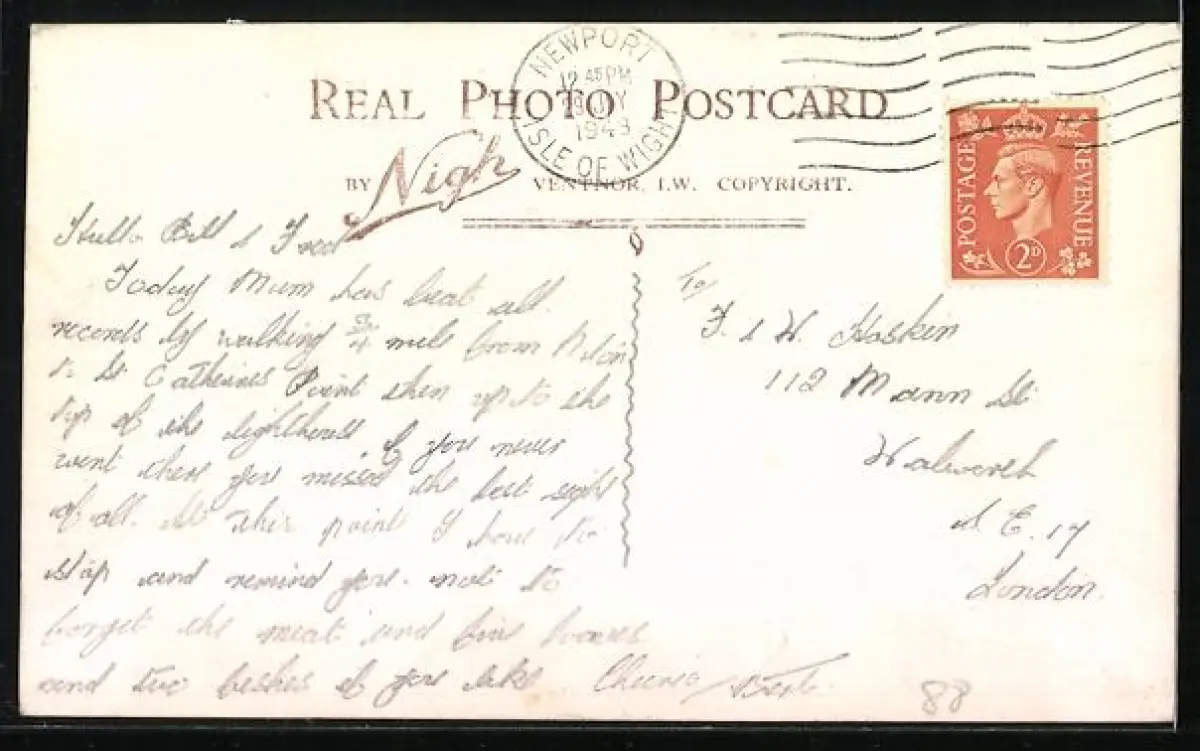 NEWPORT
12 45 PM
1948
ISLE OF WIGHT
REAL PHOTO POSTCARD
BY Nigh VENTNOR, I.W. COPYRIGHT.
POSTAGE REVENUE
2D
Hullo Bill & Fred
Today Mum has beat all
records by walking 3/4 mile from Niton
to St Catherines Point then up to the
top of the lighthouse if you never
went there you missed the best sight
of all. At this point I have to
stop and remind you not to
forget the meat and five loaves
and two fishes if you like Cheerio Bert
To
F. & W. Hoskin
112 Mann St
Walworth
S.E. 17
London.
88